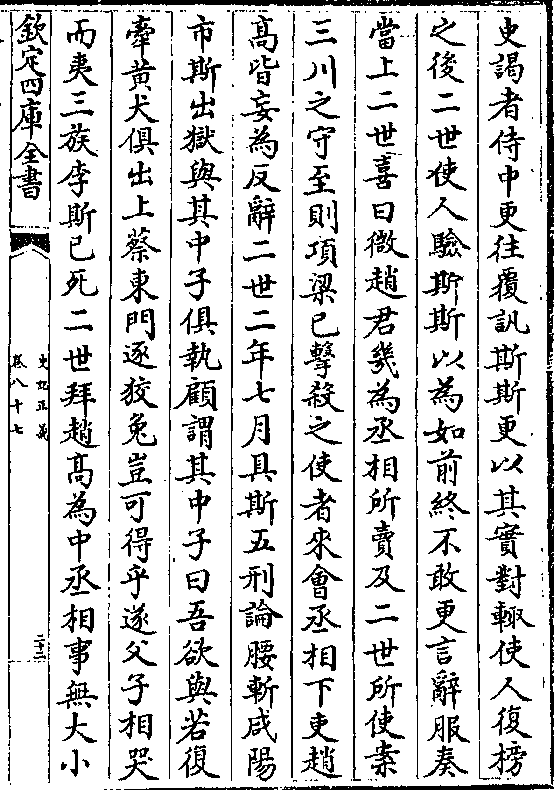 史謁者侍中更往覆訊斯斯更以其實對輙使人復榜
之後二世使人驗斯斯以為如前終不敢更言辭服奏
當上二世喜曰微趙君幾為丞相所賣及二世所使案
三川之守至則項梁已擊殺之使者來會丞相下吏趙
髙皆妄為反辭二世二年七月具斯五刑論腰斬咸陽
市斯出獄與其中子俱執顧謂其中子曰吾欲與若復
牽黄犬俱出上蔡東門逐狡兔豈可得乎遂父子相哭
而夷三族李斯已死二世拜趙髙為中丞相事無大小
欽定四庫全書
史記正義
卷八十七
二十二